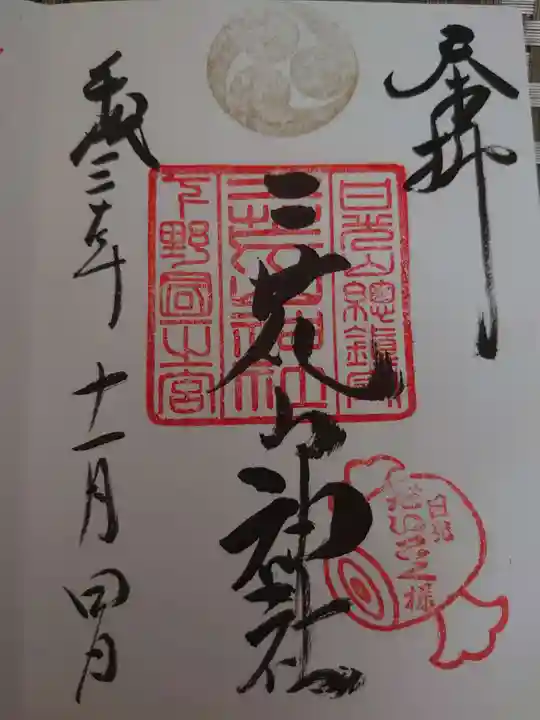 奉拝
日光山総鎮守
二荒山神社
下野国一之宮
二荒山神社
日光
だいこく様
平成三十年
十一月四日